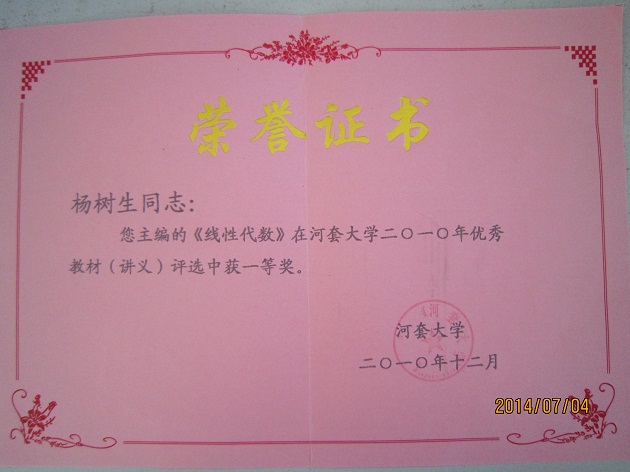 荣誉证书
杨树生同志：
您主编的《线性代数》在河套大学二〇一〇年优秀
教材（讲义）评选中获一等奖。
河套大学
二〇一〇年十二月
2014/07/04